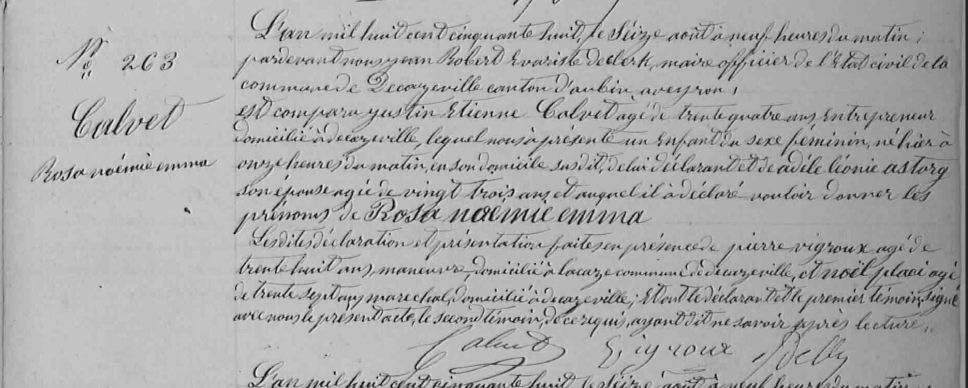 N° 263
Calvet
Rosa noémie emma
L'an mil huit cent cinquante huit, le seize août à neuf heures du matin ;
pardevant nous jean Robert Evariste declerk, maire officier de l'Etat civil de la
commune de Decazeville canton d'aubin, aveyron ;
est comparu justin Etienne Calvet agé de trente quatre ans Entrepreneur
domicilié à decazeville, lequel nous à présenté un Enfant du sexe féminin, né hier à
onze heures du matin, en son domicile susdit, de lui déclarant et de adèle léonie astorg
son épouse agée de vingt trois ans et auquel il à déclaré vouloir donner les
prénoms de Rosa noémie emma
Lesdites déclaration et présentation faites en présence de pierre vigroux agé de
trente huit ans, maneuvre, domicilié à lacaze commune de decazeville, et noël placi agé
de trente sept ans marechal, domicilié à decazeville ; Et ont le déclarant et le premier témoin, signé
avec nous le présent acte, le second témoin, de ce requis, ayant dit ne savoir après lecture.
Calvet Vigroux
L'an mil huit cent cinquante huit, le seize août à neuf heures du matin